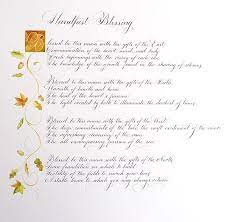 Handfast Blessing
Blessed be this union with the gifts of the East
Communication of the heart, mind, and body
Fresh beginnings with the rising of each Sun
The knowledge of the growth found in the sharing of silences
Blessed be this union with the gifts of the South
Warmth of hearth and home
The heat of the heart's passion
The light created by both to illuminate the darkest of times
Blessed be this union with the gifts of the West
The deep commitments of the lake, the swift excitement of the river
The refreshing cleansing of the rain
The all encompassing passion of the sea
Blessed be this union with the gifts of the North
Firm foundation on which to build
Fertility of the fields to enrich your lives
A stable home to which you may always return